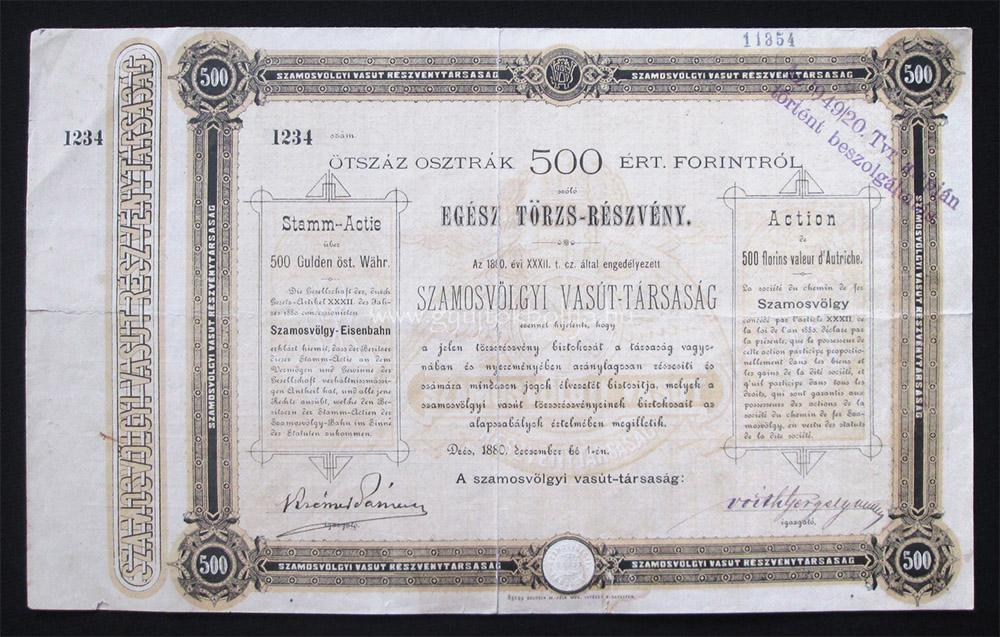 11354
500
SZAMOSVÖLGYI VASUT RÉSZVÉNYTÁRSASÁG
SZAMOSVÖLGYI VASUT RÉSZVÉNYTÁRSASÁG
500
1949/20. Tvr.
történt
1234
1234 szám.
ÖTSZÁZ OSZTRÁK 500 ÉRT. FORINTRÓL
szóló
EGÉSZ TÖRZS-RÉSZVÉNY.
Az 1880. évi XXXII. t. cz. által engedélyezett
SZAMOSVÖLGYI VASÚT-TÁRSASÁG
ezennel kijelenti, hogy
a jelen törzsrészvény birtokosát a társaság vagyo-
nában és nyereményében aránylagosan részesíti és
számára mindazon jogok élvezetét biztosítja, melyek a
szamosvölgyi vasút törzsrészvényeinek birtokosait az
alapszabályok értelmében megilletik.
Deés, 1880. Deczember hó 1-én.
A szamosvölgyi vasút-társaság:
igazgató.
igazgató.
Stamm-Actie
über
500 Gulden öst. Währ.
Die Gesellschaft der, durch
Gesetz-Artikel XXXII. des Jah-
res 1880 concessionirten
Szamosvölgy-Eisenbahn
erklärt hiemit, dass der Besitzer
dieser Stamm-Actie an dem
Vermögen und Gewinne der
Gesellschaft verhältnissmässi-
gen Antheil hat, und alle jene
Rechte ausübt, welche den Be-
sitzern der Stamm-Actien der
Szamosvölgy-Bahn im Sinne
der Statuten zukommen.
Action
de
500 florins valeur d'Autriche.
La société du chemin de fer
Szamosvölgy
concédé par l'article XXXII.
de la loi de l'an 1880. déclare par
la présente, que le possesseur de
cette action participe proportio-
nellement dans les biens et
les gains de la dite société, et
qu'il participe dans tous les
droits, qui sont garantis aux
possesseurs des actions de la
société du chemin de fer Sza-
mosvölgy, en vertu des statuts
de la dite société.
SZAMOSVÖLGYI VASUT RÉSZVÉNYTÁRSASÁG
SZAMOSVÖLGYI VASUT RÉSZVÉNYTÁRSASÁG
SZAMOSVÖLGYI VASUT RÉSZVÉNYTÁRSASÁG
500
SZAMOSVÖLGYI VASUT RÉSZVÉNYTÁRSASÁG
SZAMOSVÖLGYI VASUT RÉSZVÉNYTÁRSASÁG
500